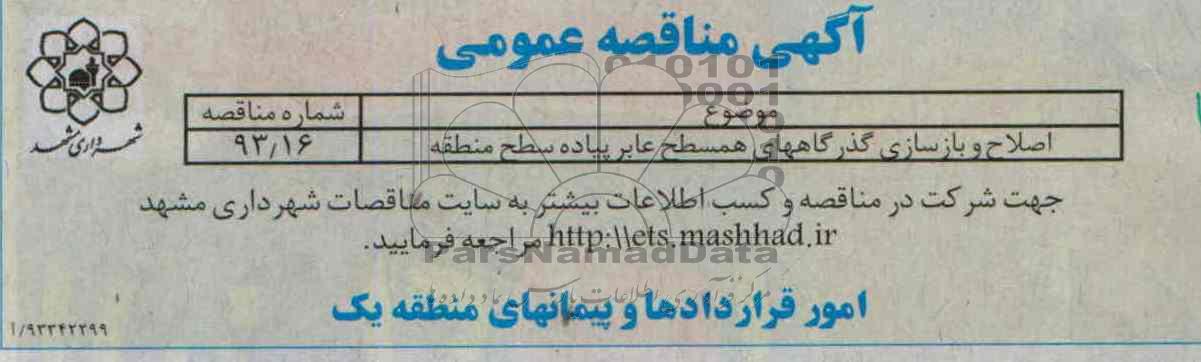 آگهی مناقصه عمومی
شهرداری مشهد
موضوع شماره مناقصه
اصلاح و بازسازی گذرگاههای همسطح عابر پیاده سطح منطقه ۹۳/۱۶
جهت شرکت در مناقصه و کسب اطلاعات بیشتر به سایت مناقصات شهرداری مشهد
http:\\ets.mashhad.ir مراجعه فرمایید.
ParsNamadData
امور قراردادها و پیمانهای منطقه یک
۱/۹۳۳۴۲۲۹۹